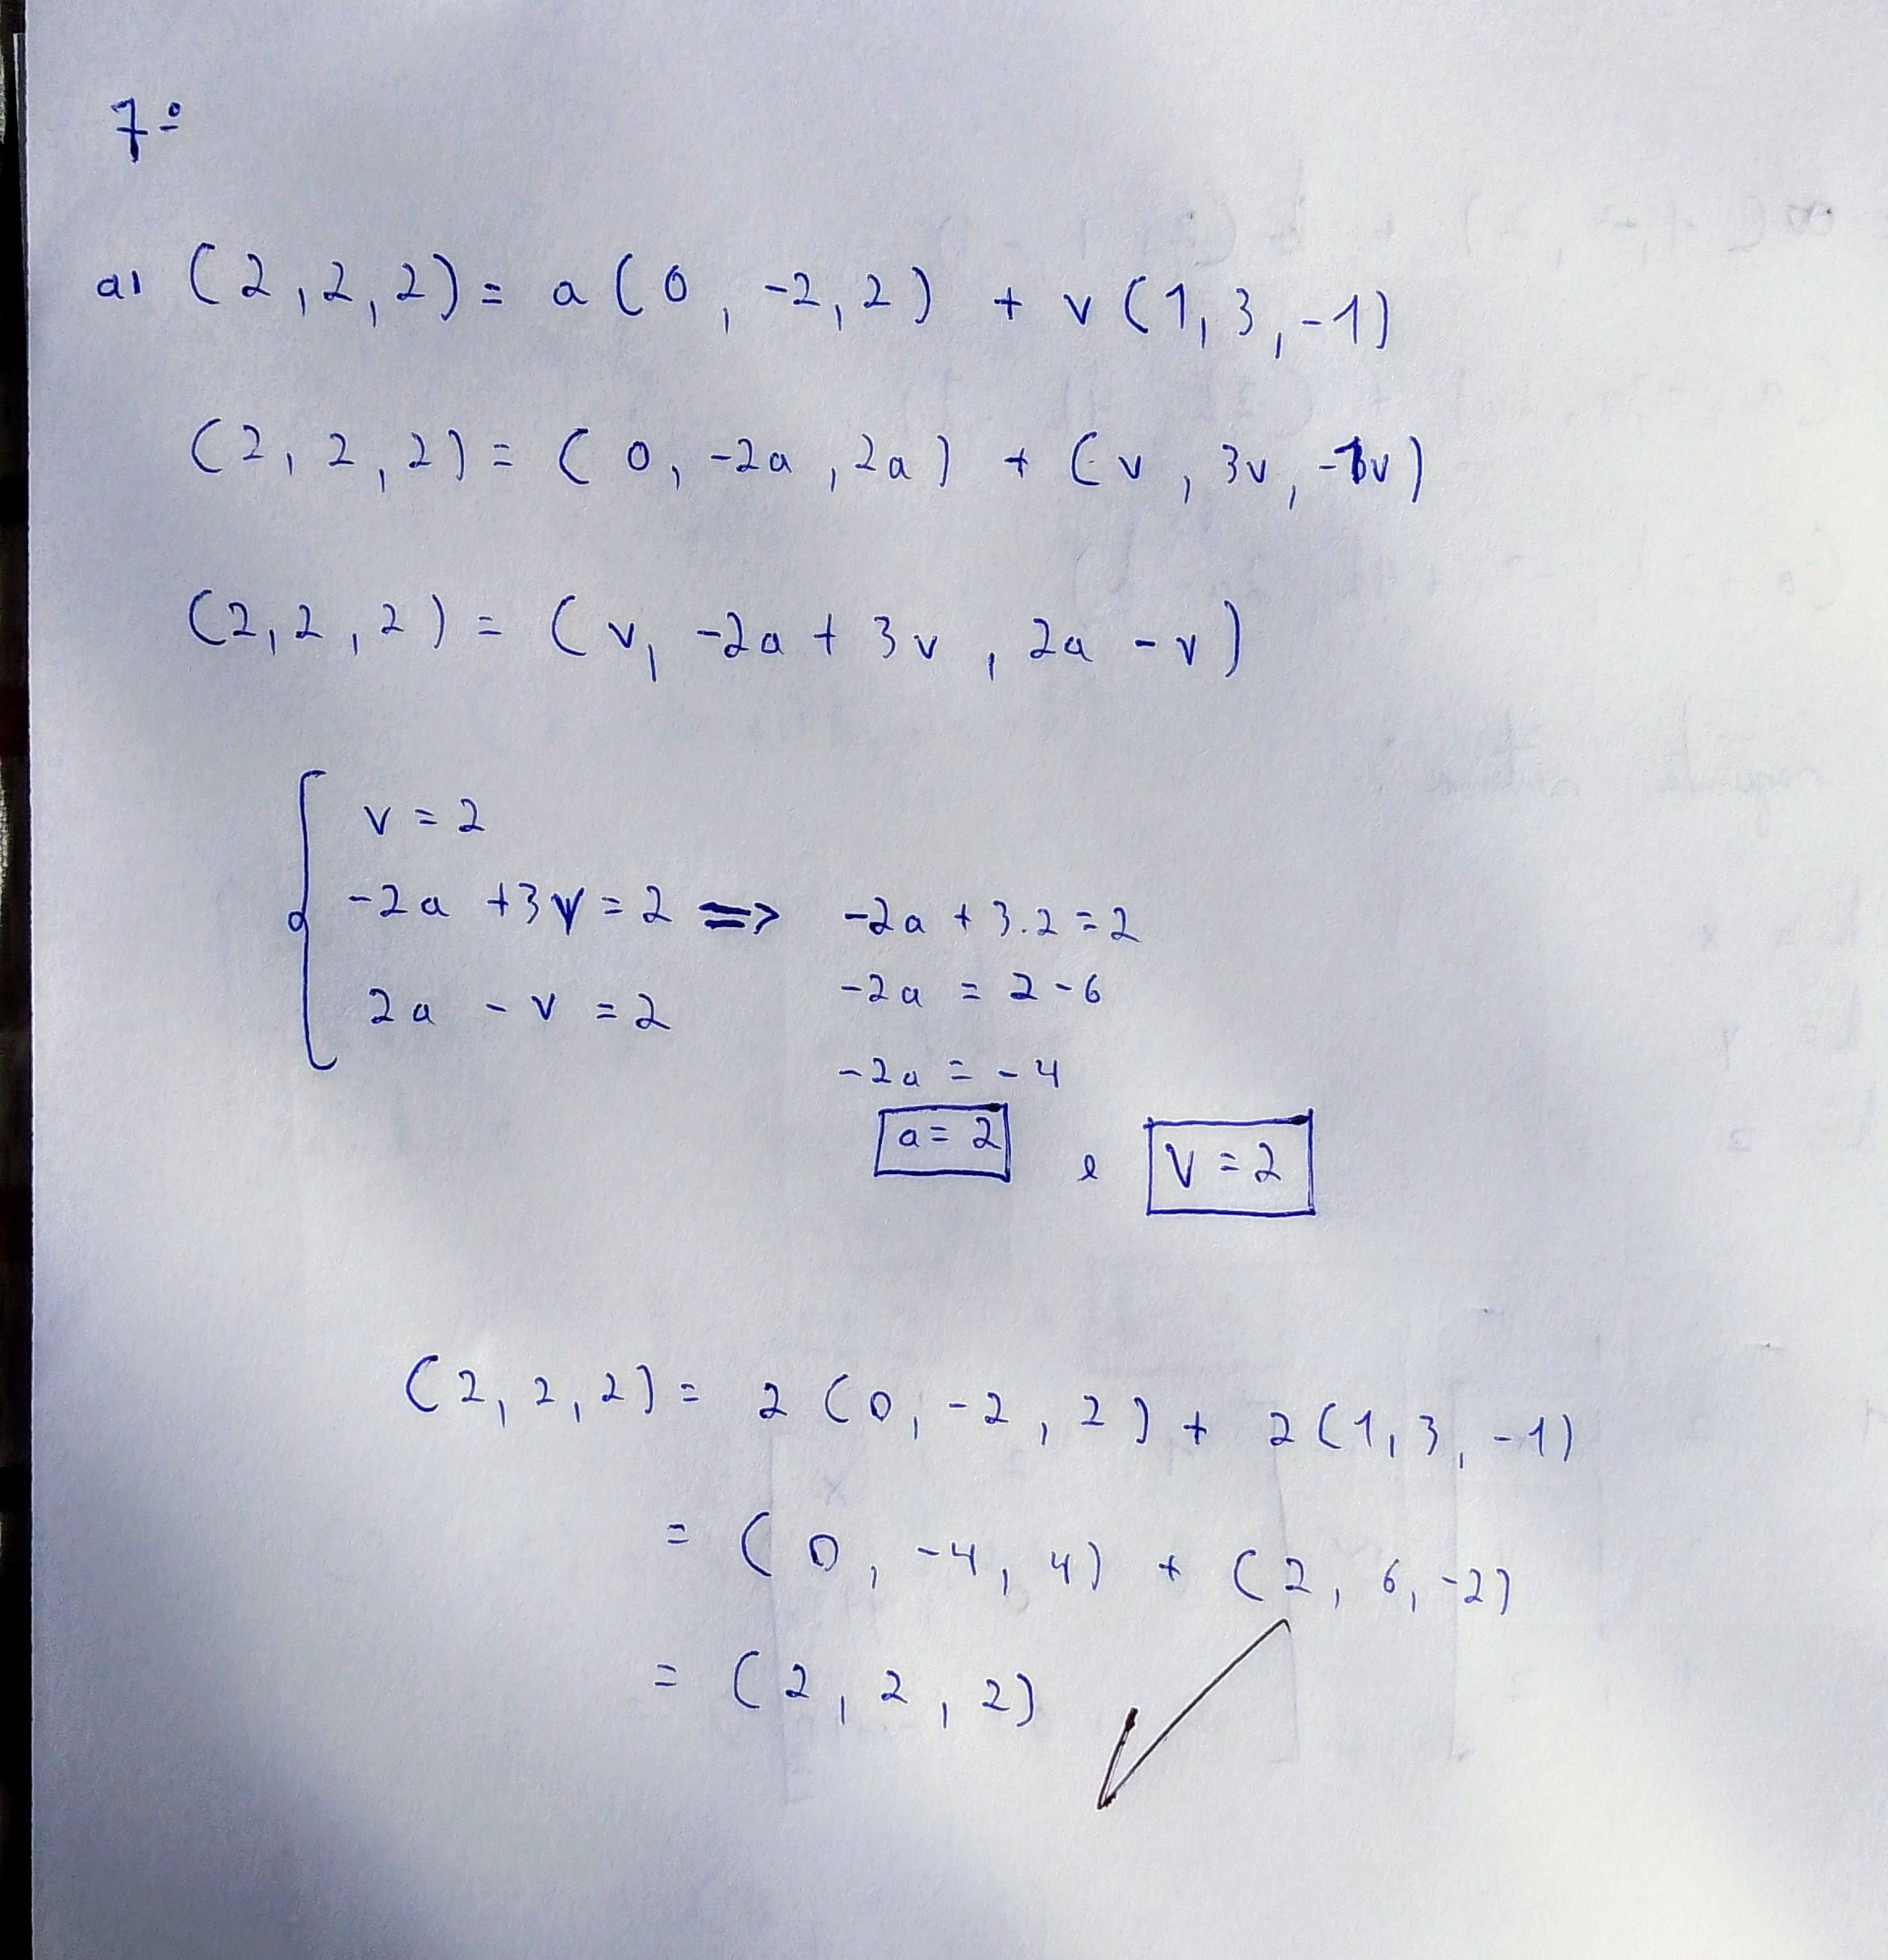 7º
a) (2,2,2) = a(0,-2,2) + v(1,3,-1)
(2,2,2) = (0,-2a,2a) + (v,3v,-1v)
(2,2,2) = (v,-2a+3v,2a-v)
v=2
-2a+3v=2 => -2a+3.2=2
-2a = 2-6
2a-v=2
-2a = -4
a=2 e v=2
(2,2,2) = 2(0,-2,2) + 2(1,3,-1)
= (0,-4,4) + (2,6,-2)
= (2,2,2)